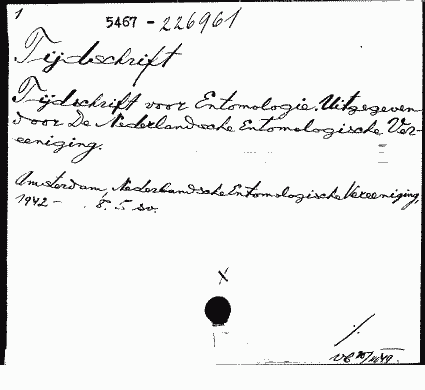 1
5467 - 226961
Tijdschrift
Tijdschrift voor Entomologie. Uitgegeven
door De Nederlandsche Entomologische Ver-
eeniging.
Amsterdam, Nederlandsche Entomologische Vereeniging,
1942 - 8. 5 sv.
X